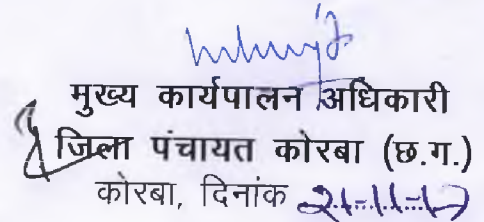 मुख्य कार्यपालन अधिकारी
जिला पंचायत कोरबा (छ.ग.)
कोरबा, दिनांक 21-11-17